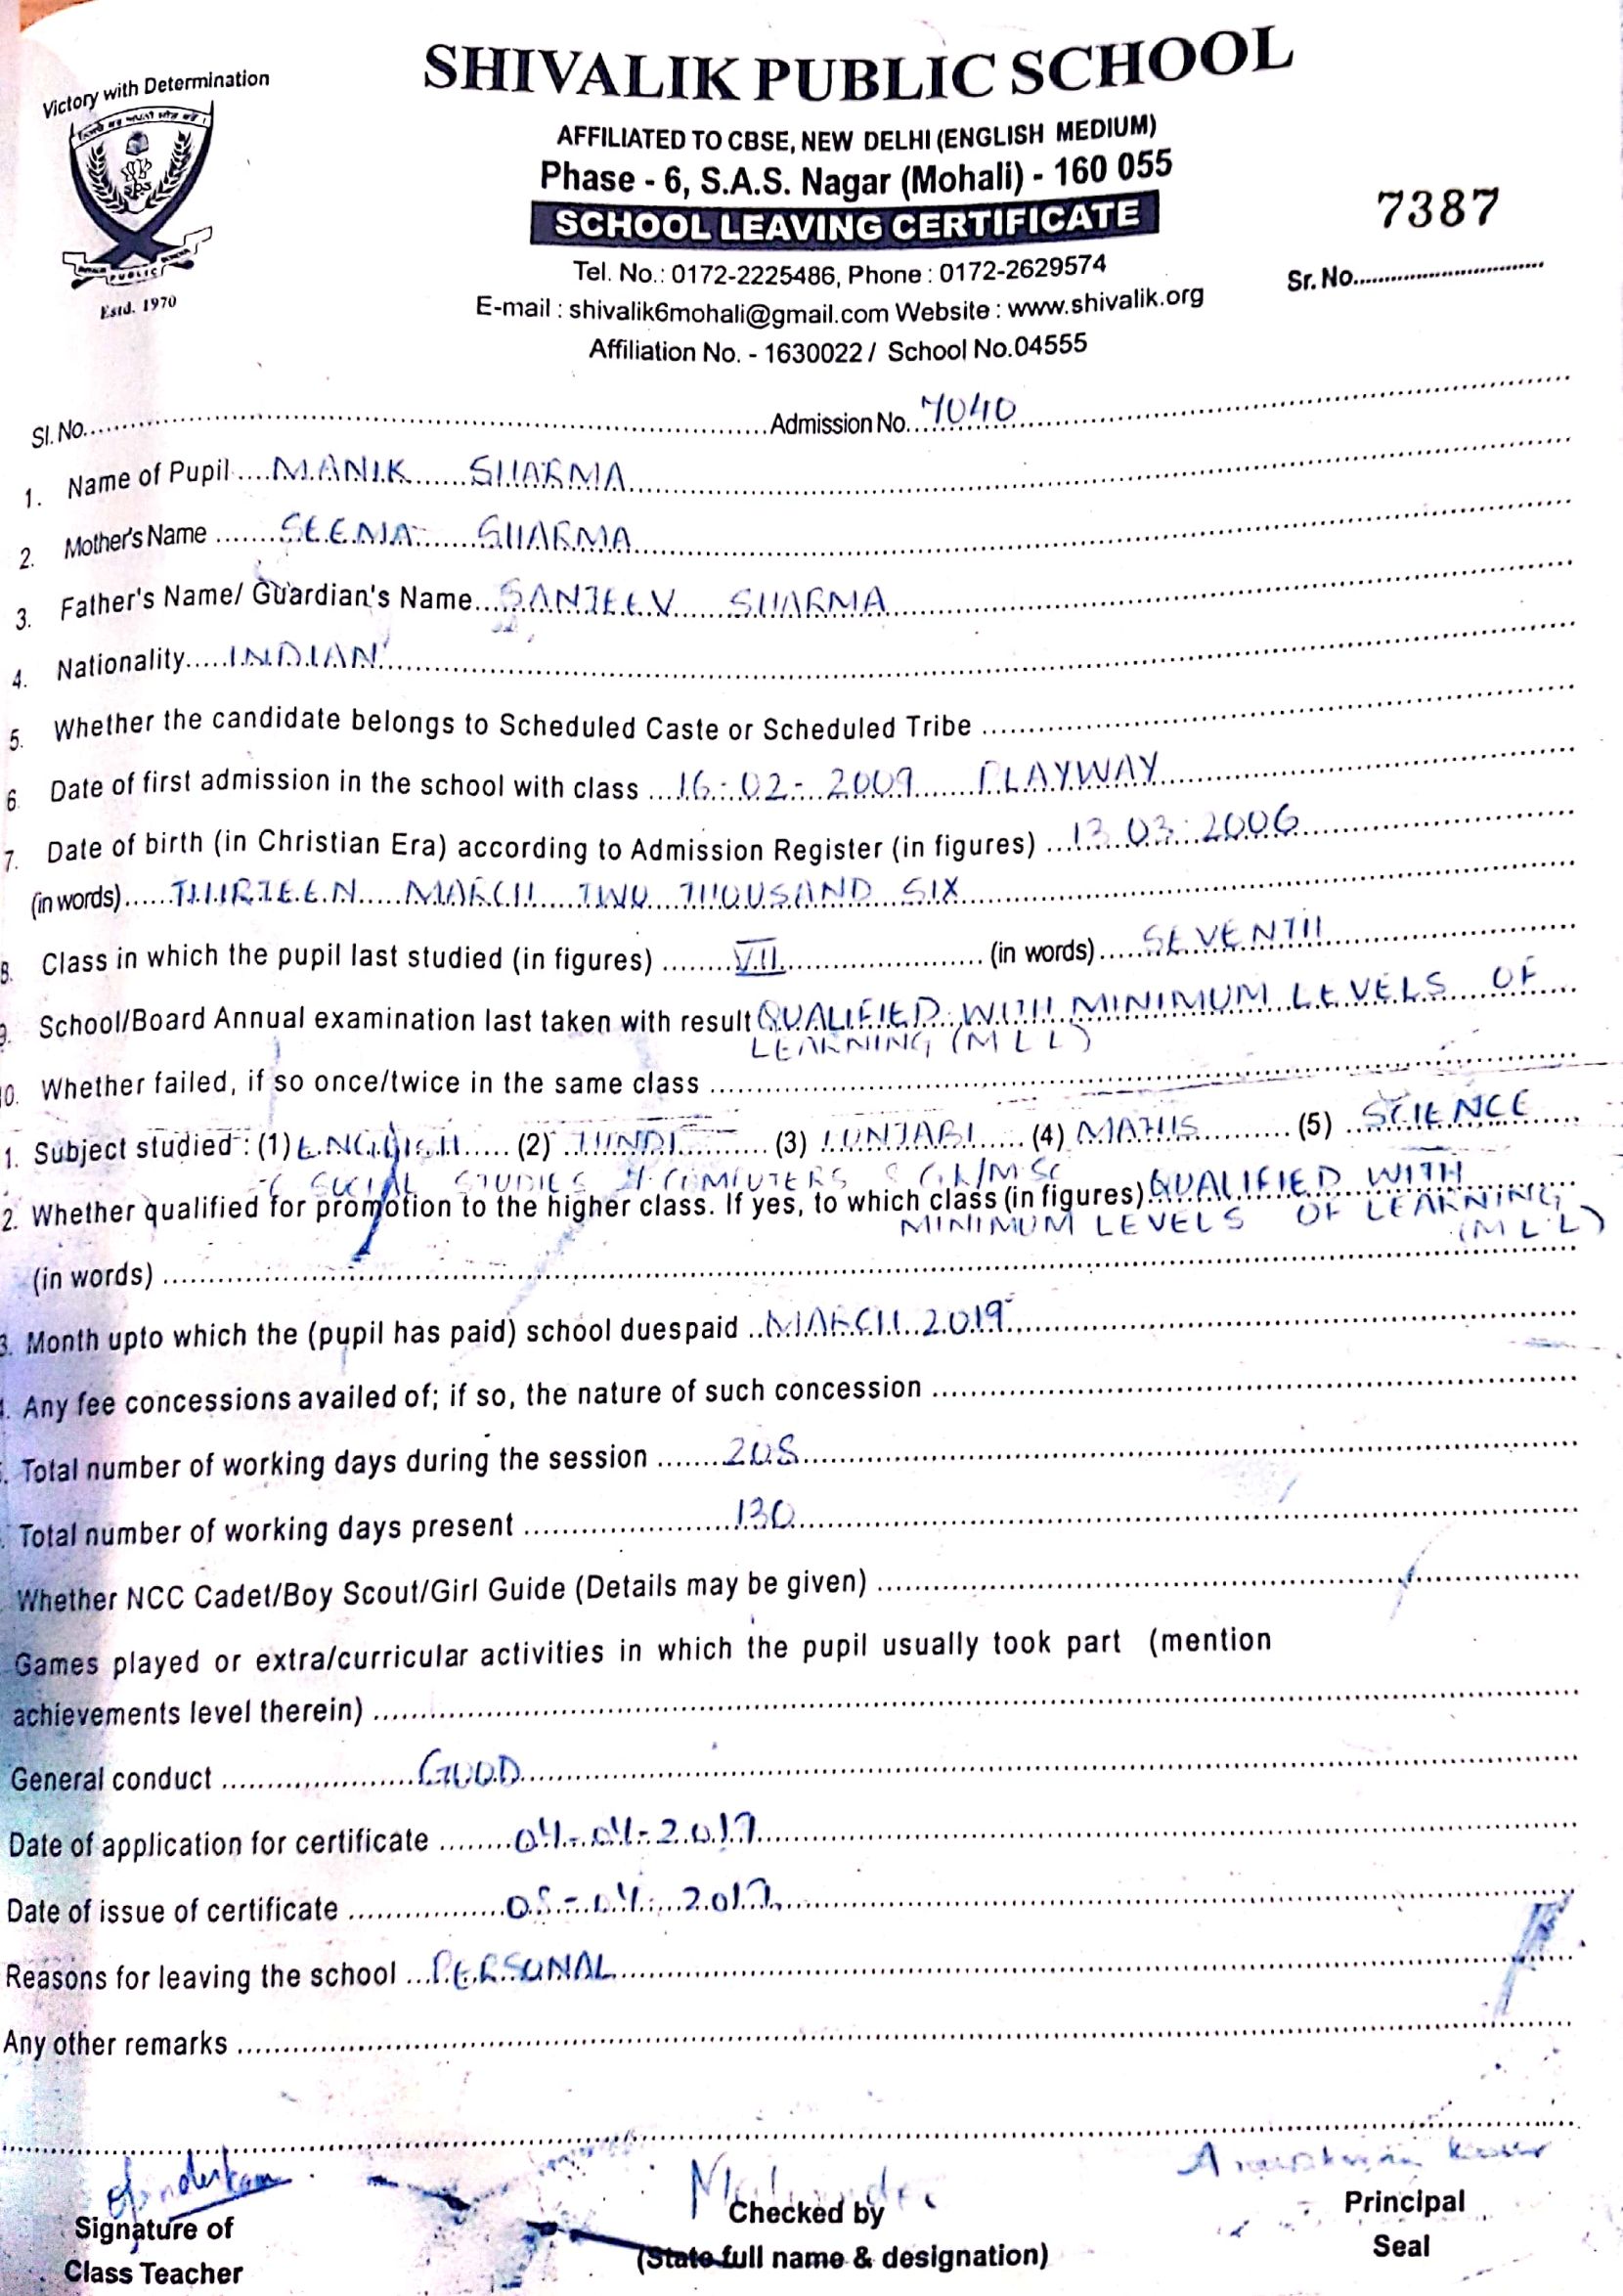 Victory with Determination
SHIVALIK PUBLIC SCHOOL
AFFILIATED TO CBSE, NEW DELHI (ENGLISH MEDIUM)
Phase - 6, S.A.S. Nagar (Mohali) - 160 055
SCHOOL LEAVING CERTIFICATE
7387
Tel. No.: 0172-2225486, Phone : 0172-2629574
Sr. No.
E-mail : shivalik6mohali@gmail.com Website : www.shivalik.org
Estd. 1970
Affiliation No. - 1630022 / School No.04555
Sl. No. Admission No. 7040
1. Name of Pupil MANIK SHARMA
2. Mother's Name SEEMA SHARMA
3. Father's Name/ Guardian's Name SANJEEV SHARMA
4. Nationality INDIAN
5. Whether the candidate belongs to Scheduled Caste or Scheduled Tribe
6. Date of first admission in the school with class 16-02-2009 PLAYWAY
7. Date of birth (in Christian Era) according to Admission Register (in figures) 13.03.2006
(in words) THIRTEEN MARCH TWO THOUSAND SIX
8. Class in which the pupil last studied (in figures) VII (in words) SEVENTH
9. School/Board Annual examination last taken with result QUALIFIED WITH MINIMUM LEVELS OF
LEARNING (MLL)
0. Whether failed, if so once/twice in the same class
1. Subject studied : (1) ENGLISH (2) HINDI (3) PUNJABI (4) MATHS (5) SCIENCE
SOCIAL STUDIES COMPUTERS GK/MSC
2. Whether qualified for promotion to the higher class. If yes, to which class (in figures) QUALIFIED WITH
MINIMUM LEVELS OF LEARNING
(MLL)
(in words)
3. Month upto which the (pupil has paid) school duespaid MARCH 2019
Any fee concessions availed of; if so, the nature of such concession
Total number of working days during the session 208
Total number of working days present 130
Whether NCC Cadet/Boy Scout/Girl Guide (Details may be given)
Games played or extra/curricular activities in which the pupil usually took part (mention
achievements level therein)
General conduct GOOD
Date of application for certificate 04-04-2019
Date of issue of certificate 05-04-2019
Reasons for leaving the school PERSONAL
Any other remarks
Signature of
Class Teacher
Checked by
(State full name & designation)
Principal
Seal